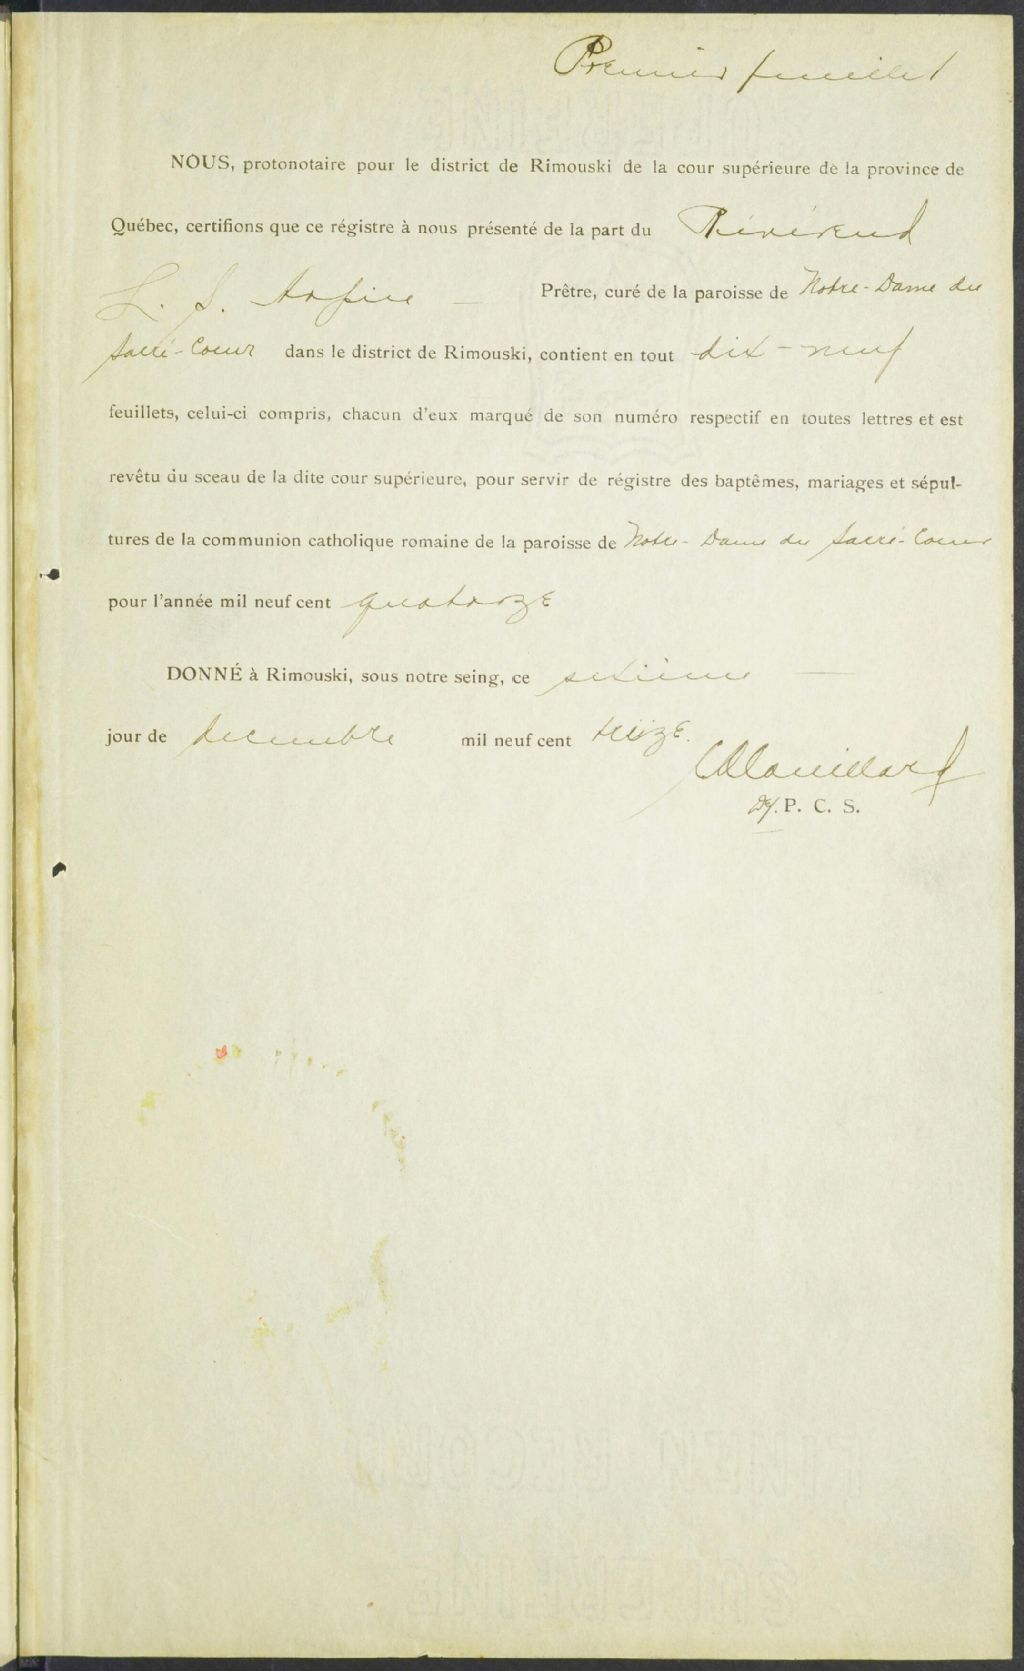 Premier feuillet
NOUS, protonotaire pour le district de Rimouski de la cour supérieure de la province de
Québec, certifions que ce régistre à nous présenté de la part du Révérend
L. S. Prêtre, curé de la paroisse de Notre-Dame du
Sacré-Coeur dans le district de Rimouski, contient en tout dix-neuf
feuillets, celui-ci compris, chacun d'eux marqué de son numéro respectif en toutes lettres et est
revêtu du sceau de la dite cour supérieure, pour servir de régistre des baptêmes, mariages et sépul-
tures de la communion catholique romaine de la paroisse de Notre-Dame du Sacré-Coeur
pour l'année mil neuf cent quatorze
DONNÉ à Rimouski, sous notre seing, ce sixième
jour de decembre mil neuf cent treize.
Dy. P. C. S.
LINEN RECORD